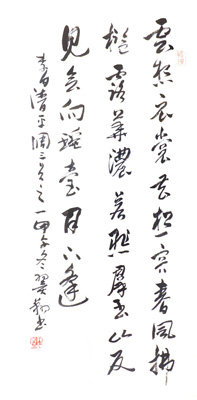 雲想衣裳花想容春風拂
檻露華濃若非群玉山頭
見會向瑤臺月下逢
李白清平調三首之一甲午冬書